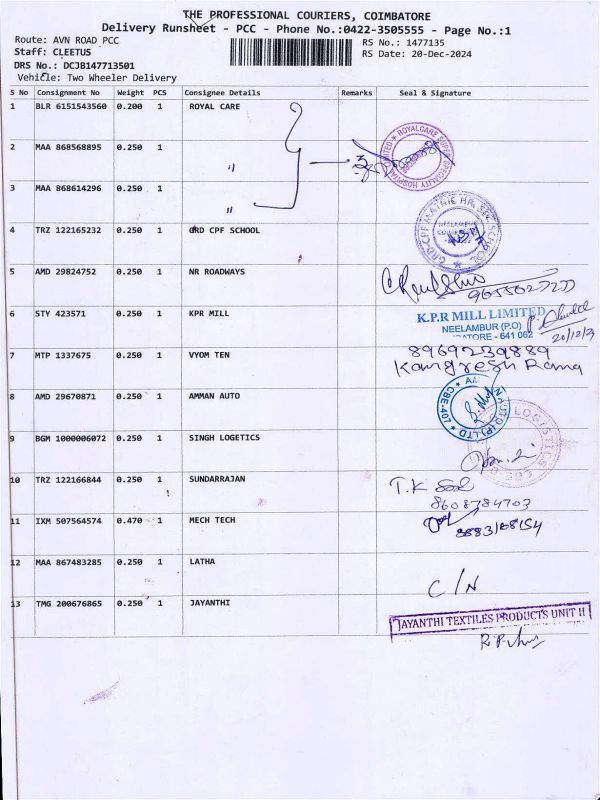 THE PROFESSIONAL COURIERS, COIMBATORE
Delivery Runsheet - PCC - Phone No.:0422-3505555 - Page No.:1
Route: AVN ROAD PCC
RS No.: 1477135
Staff: CLEETUS
RS Date: 20-Dec-2024
DRS No.: DCJB147713501
Vehicle: Two Wheeler Delivery
S No Consignment No Weight PCS Consignee Details Remarks Seal & Signature
1 BLR 6151543560 0.200 1 ROYAL CARE
2 MAA 868568895 0.250 1 "
3 MAA 868614296 0.250 1 "
3
ROYALCARE SUPER SPECIALITY HOSPITAL LIMITED
4 TRZ 122165232 0.250 1 GRD CPF SCHOOL
GRD-CPF MATRIC HR. SEC. SCHOOL
5 AMD 29824752 0.250 1 NR ROADWAYS
6 STY 423571 0.250 1 KPR MILL
K.P.R MILL LIMITED
NEELAMBUR (P.O)
ATORE - 641 062
7 MTP 1337675 0.250 1 VYOM TEN
8969239889
Kamgresh Rama
8 AMD 29670871 0.250 1 AMMAN AUTO
CBE-407
9 BGM 1000006072 0.250 1 SINGH LOGETICS
LOGISTICS
10 TRZ 122166844 0.250 1 SUNDARRAJAN
T.K
8608784703
11 IXM 507564574 0.470 1 MECH TECH
8883168154
12 MAA 867483285 0.250 1 LATHA
C/N
13 TMG 200676865 0.250 1 JAYANTHI
JAYANTHI TEXTILES PRODUCTS UNIT II